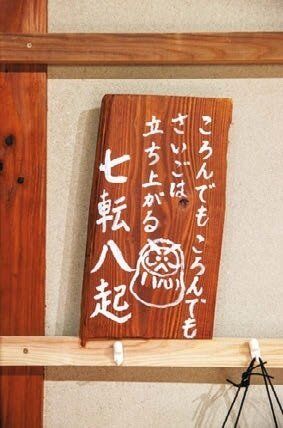 ころんでもころんでも
さいごは
立ち上がる
七転八起